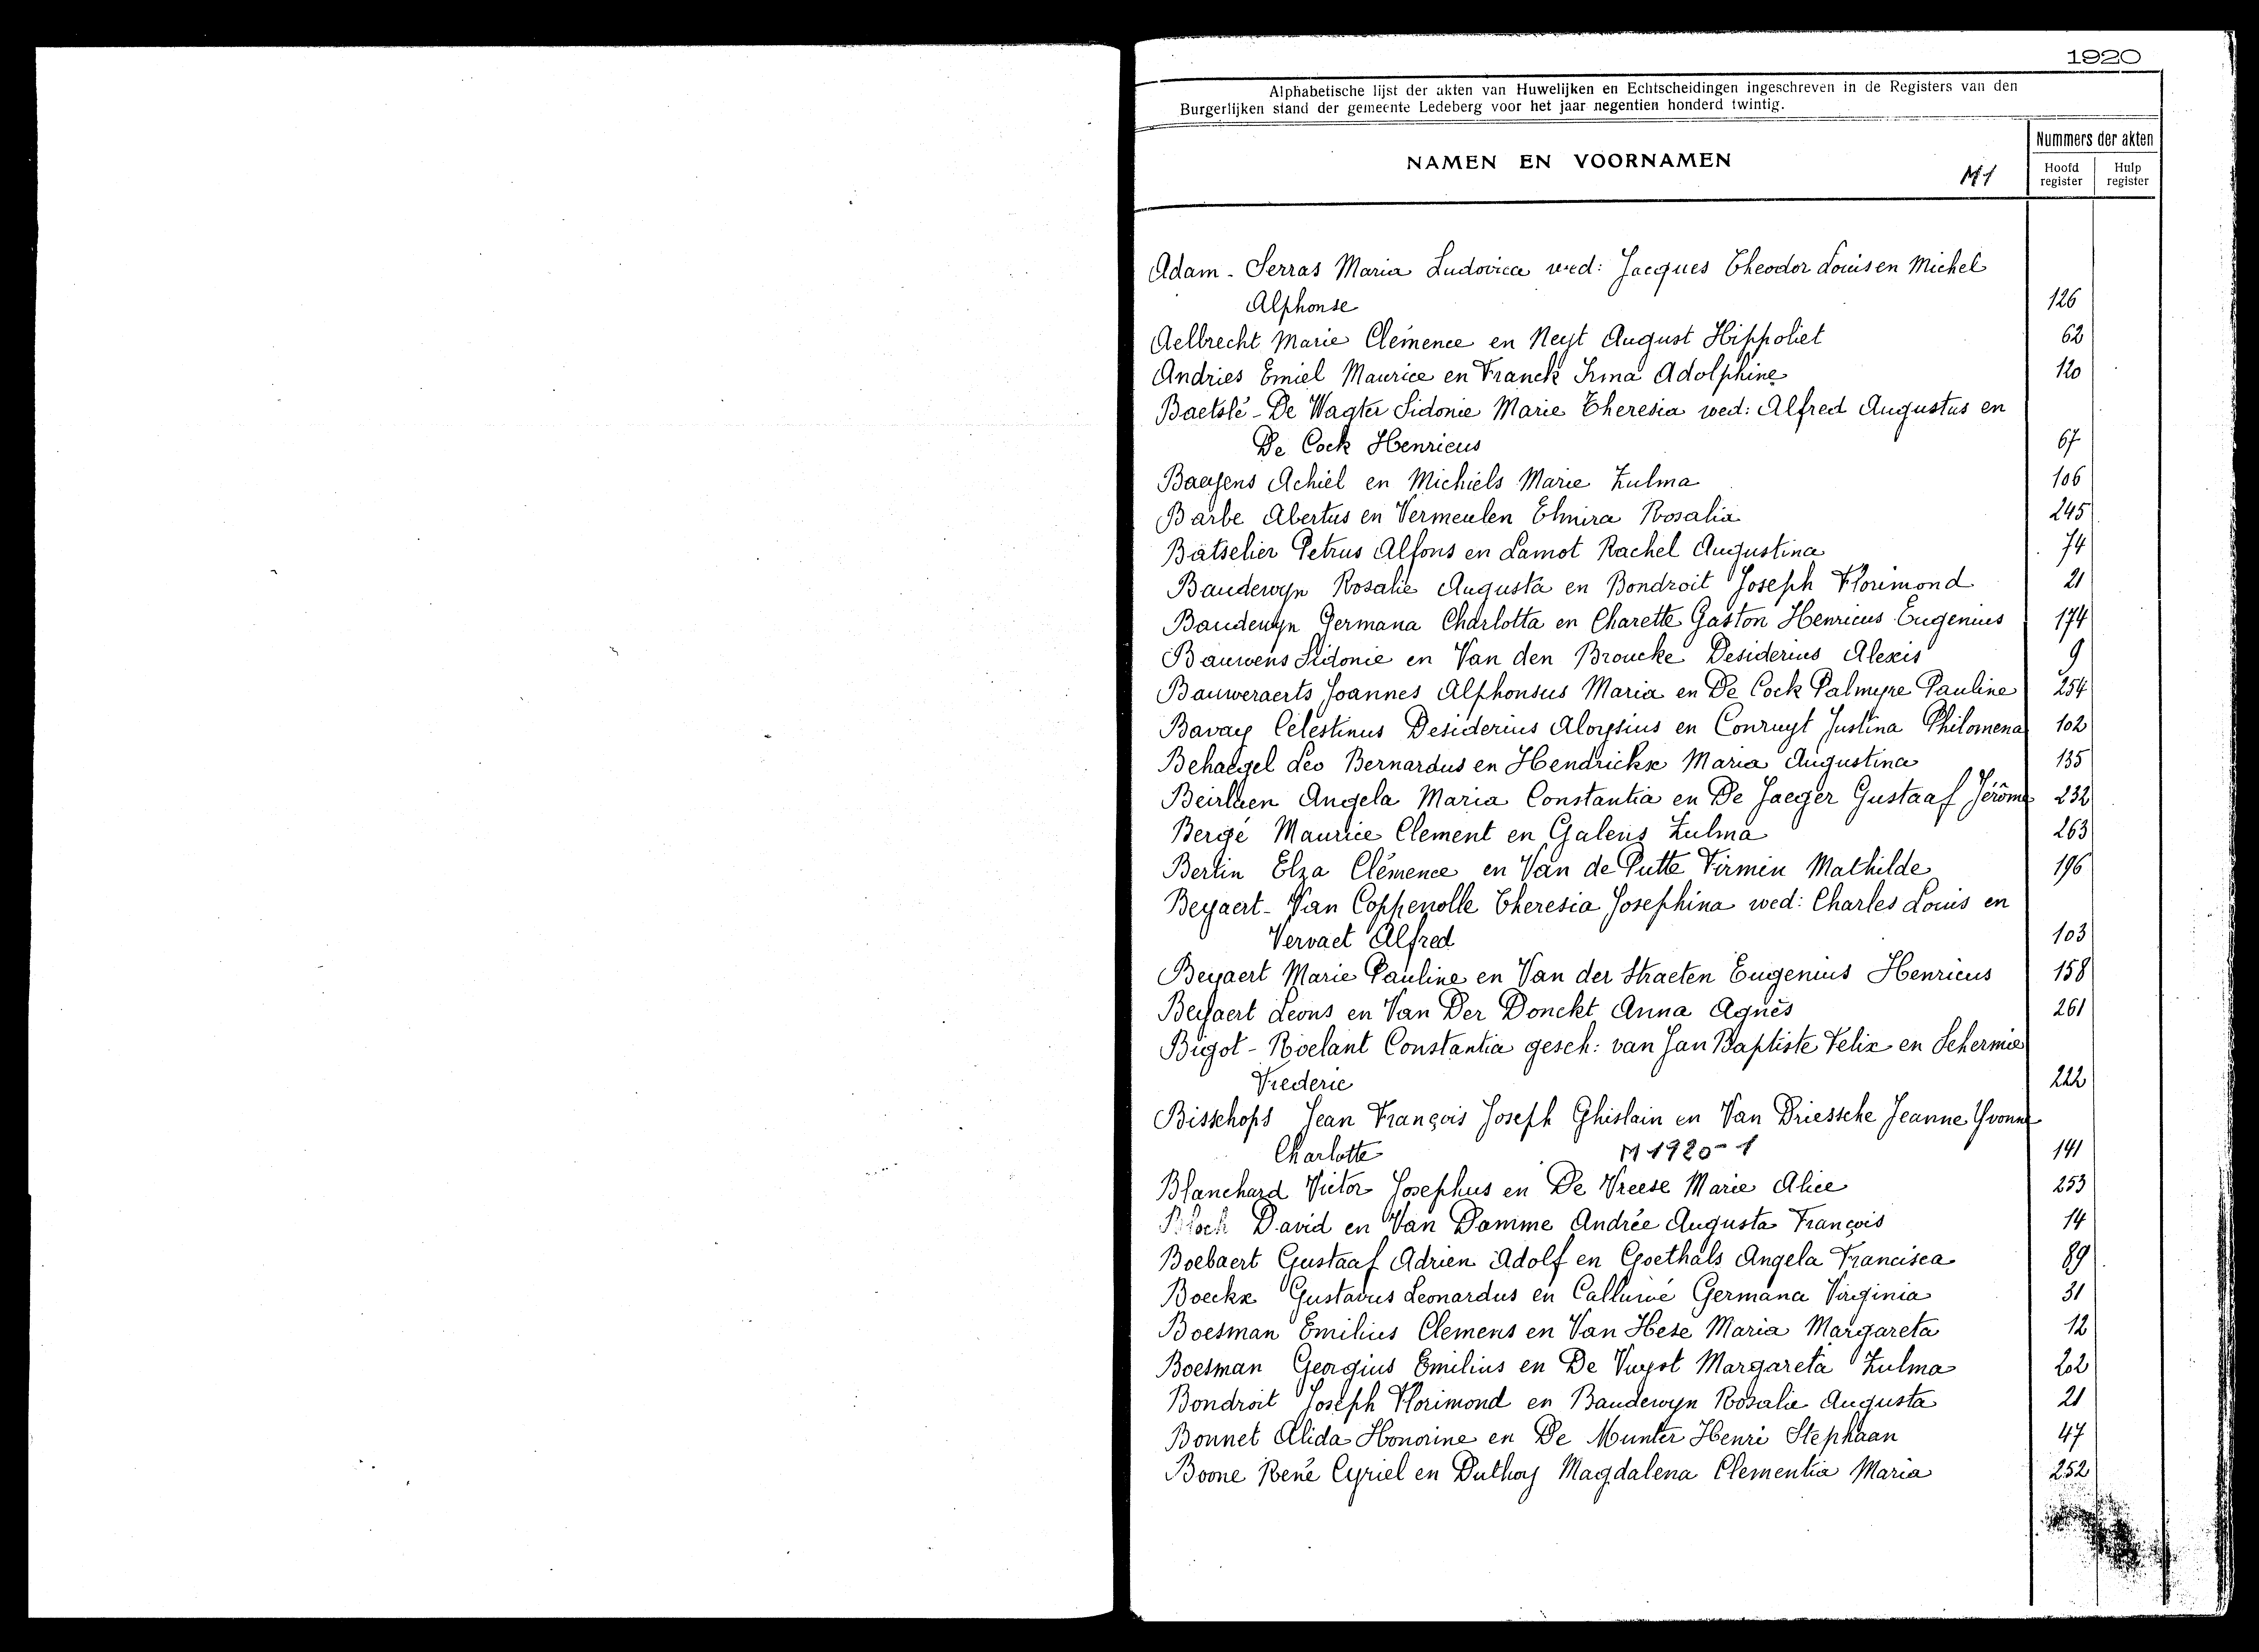 1920
Alphabetische lijst der akten van Huwelijken en Echtscheidingen ingeschreven in de Registers van den
Burgerlijken stand der gemeente Ledeberg voor het jaar negentien honderd twintig.
NAMEN EN VOORNAMEN M1
Nummers der akten
Hoofd register Hulp register
Adam - Serras Maria Ludovica wed: Jacques Theodor Louis en Michel
Alphonse 126
Aelbrecht Marie Clémence en Neyt August Hippoliet 62
Andries Emiel Maurice en Franck Irma Adolphine 120
Baetslé - De Wagter Sidonie Marie Theresia wed: Alfred Augustus en
De Cock Henricus 67
Baeyens Achiel en Michiels Marie Zulma 106
Barbe Abertus en Vermeulen Elmira Rosalia 245
Batselier Petrus Alfons en Lamot Rachel Augustina 74
Baudewyn Rosalie Augusta en Bondroit Joseph Florimond 21
Baudewyn Germana Charlotta en Charette Gaston Henricus Eugenius 174
Bauwens Sidonie en Van den Broucke Desiderius Alexis 9
Bauweraerts Joannes Alphonsus Maria en De Cock Palmyre Pauline 254
Bavay Célestinus Desiderius Aloysius en Conruyt Justina Philomena 102
Behaegel Leo Bernardus en Hendrickx Maria Augustina 135
Beirlaen Angela Maria Constantia en De Jaeger Gustaaf Jérôme 232
Bergé Maurice Clement en Galens Zulma 263
Berlin Elza Clémence en Van de Putte Firmin Mathilde 196
Beyaert - Van Coppenolle Theresia Josephina wed: Charles Louis en
Vervaet Alfred 103
Beyaert Marie Pauline en Van der Straeten Eugenius Henricus 158
Beyaert Leons en Van Der Donckt Anna Agnès 261
Bigot - Roelant Constantia gesch: van Jan Baptiste Felix en Schermie
Frederic 222
Bisschops Jean François Joseph Ghislain en Van Driessche Jeanne Yvonne
Charlotte M 1920-1 141
Blanchard Victor Josephus en De Vreese Marie Alice 253
Bloch David en Van Damme Andrée Augusta François 14
Boebaert Gustaaf Adrien Adolf en Goethals Angela Francisca 89
Boeckx Gustavus Leonardus en Germana Virginia 31
Boesman Emilius Clemens en Van Hese Maria Margareta 12
Boesman Georgius Emilius en De Vuyst Margareta Zulma 202
Bondroit Joseph Florimond en Baudewyn Rosalie Augusta 21
Bonnet Alida Honorine en De Munter Henri Stephaan 47
Boone René Cyriel en Duthoy Magdalena Clementia Maria 252